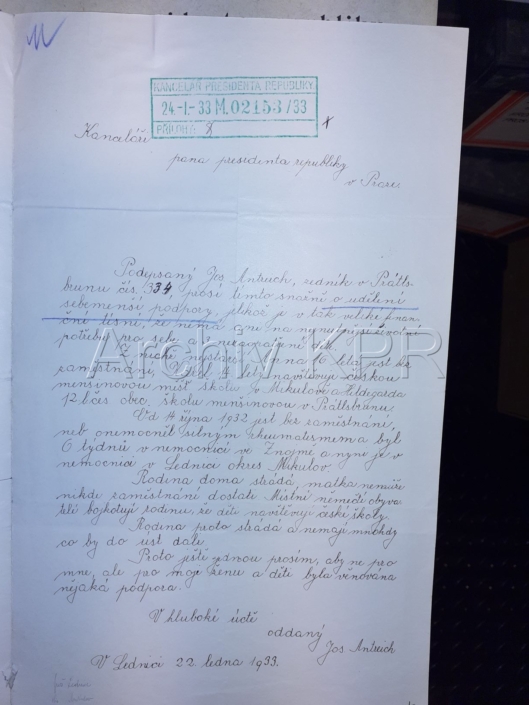 KANCELÁŘ PRESIDENTA REPUBLIKY
24.-I.-33 M, 02153/33
PŘÍLOHA:
Kanceláři
pana presidenta republiky
v Praze.
Podepsaný Jos Antreich, zedník v Prátls-
brunu čís. 334, prosí tímto snažně o udělení
sebemenší podpory, jelikož je v tak veliké finan-
ční tísni, že nemá ani na nejnutnější životní
potřeby pro sebe a
Z nichž nejstarší Anna 16 letá jest bez
zaměstnání, 14 letý navštěvuje českou
menšinovou měšť. školu v Mikulově a Hildegarda
12 l. čes. obec. školu menšinovou v Prátlsbrunu.
Od 4 října 1932 jest bez zaměstnání,
neb onemocněl silným rheumatismem a byl
6 týdnů v nemocnici ve Znojmě a nyní je v
nemocnici v Lednici okres Mikulov.
Rodina doma strádá, matka nemůže
nikde zaměstnání dostati. Místní němečtí obyva-
telé bojkotují rodinu, že děti navštěvují české školy.
Rodina proto strádá a nemají mnohdy
co by do úst dali.
Proto ještě jednou prosím, aby ne pro
mne, ale pro moje ženu a děti byla věnována
nějaká podpora.
V hluboké úctě
oddaný
Jos Antreich
V Lednici 22 ledna 1933.
Archiv KPR